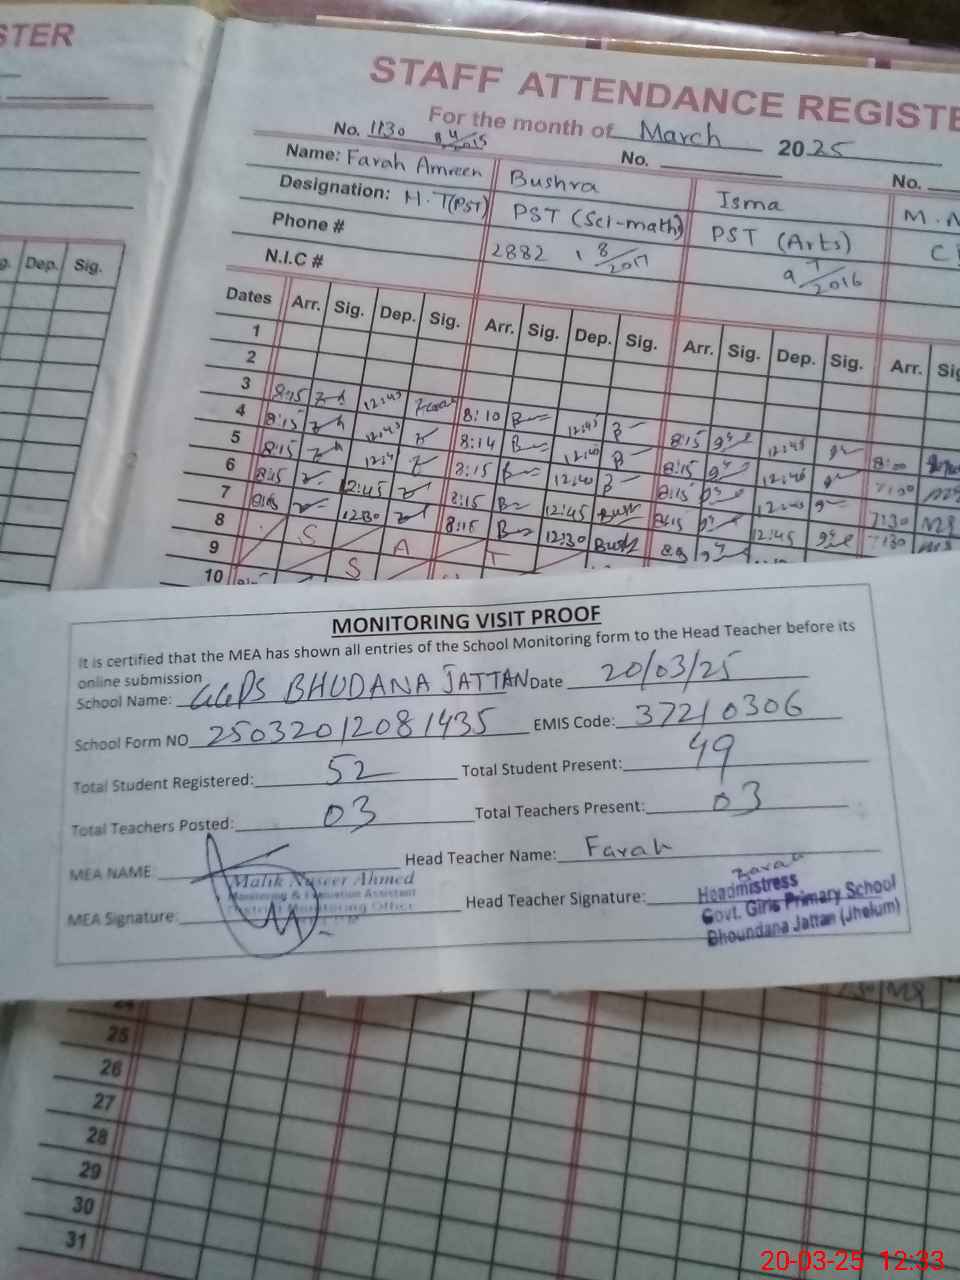 STER
STAFF ATTENDANCE REGISTE
For the month of March 2025
No. 1130 No. No.
Name: Farah Amreen Bushra Isma
Designation: H.T(PST) PST (Sci-math) PST (Arts)
Phone # 2882 8/2017 9 7/2016
N.I.C #
Dep. Sig.
Dates Arr. Sig. Dep. Sig. Arr. Sig. Dep. Sig. Arr. Sig. Dep. Sig. Arr. Sig
1
2
3 8:15 12:45 8:10 12:45 8:15 12:45 8:00
4 8:15 12:45 8:14 12:40 8:15 7:30
5 8:15 8:15 12:40 8:15 7:30
6 8:15 12:45 8:15 12:45 8:15 12:45 7:30
7 12:30 8:15 12:30 Bush
8 S A T
9 S
10
MONITORING VISIT PROOF
It is certified that the MEA has shown all entries of the School Monitoring form to the Head Teacher before its
online submission
School Name: GGPS BHUDANA JATTAN Date 20/03/25
School Form NO 25032012081435 EMIS Code: 37210306
Total Student Registered: 52 Total Student Present: 49
Total Teachers Posted: 03 Total Teachers Present: 03
MEA NAME: Head Teacher Name: Farah
Malik Naseer Ahmed
Monitoring & Evaluation Assistant
District Monitoring Office
MEA Signature: Head Teacher Signature: Farah
Headmistress
Govt. Girls Primary School
Bhoundana Jattan (Jhelum)
24
25
26
27
28
29
30
31
20-03-25 12:33